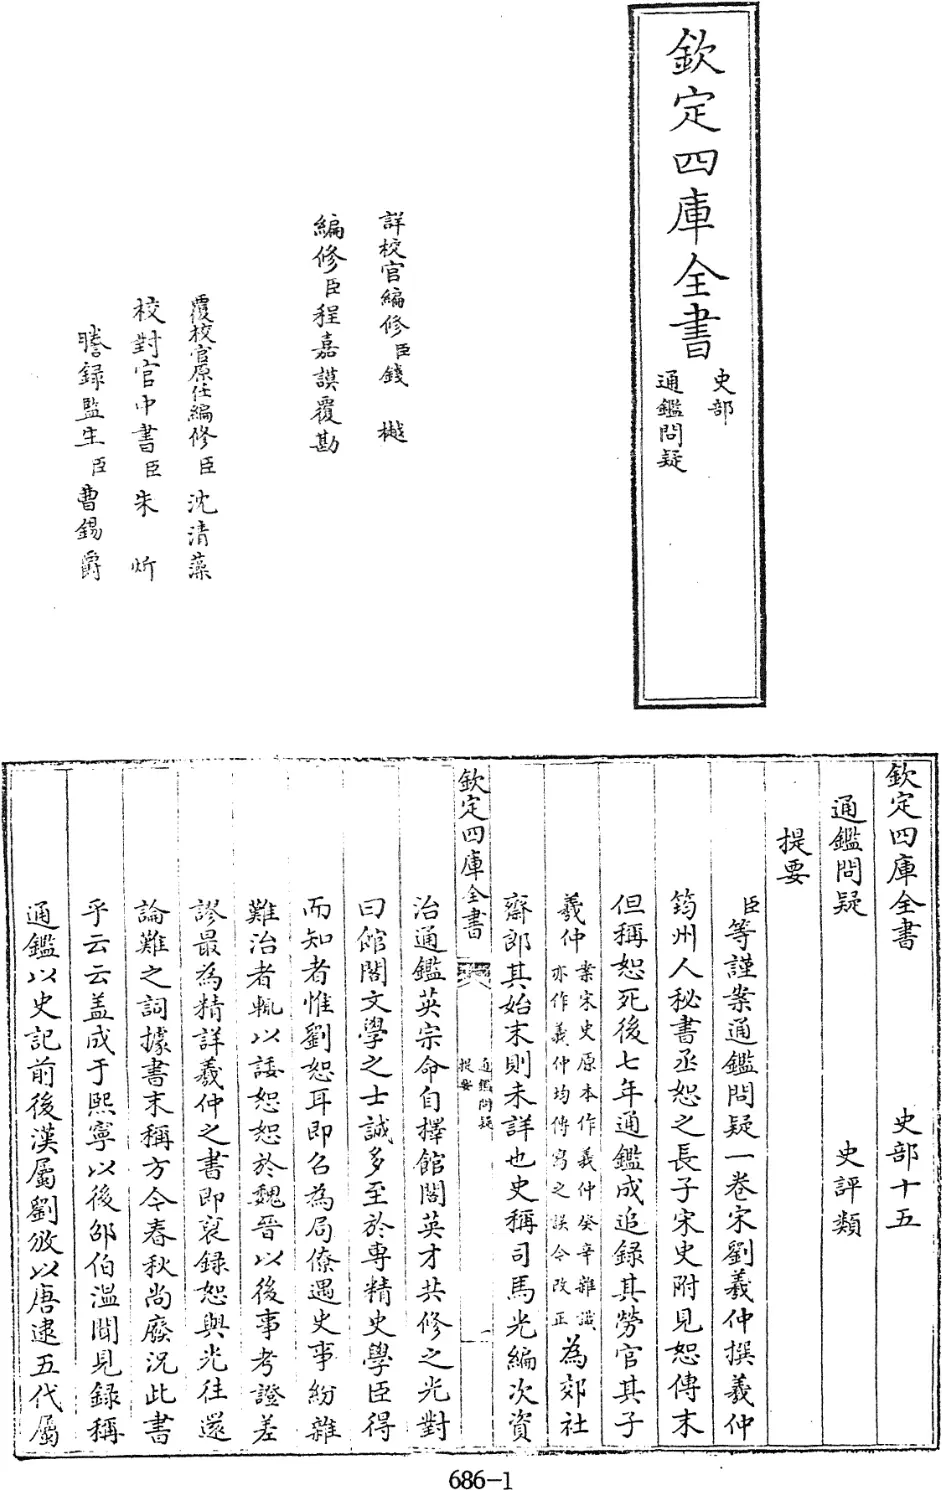 欽定四庫全書
史部
通鑑問疑
詳校官編修臣錢樾
編修臣程嘉謨覆勘
覆校官原任編修臣沈清藻
校對官中書臣朱炘
謄録監生臣曹錫爵
欽定四庫全書 史部十五
通鑑問疑 史評類
提要
臣等謹案通鑑問疑一卷宋劉羲仲撰羲仲
筠州人秘書丞恕之長子宋史附見恕傳末
但稱恕死後七年通鑑成追録其勞官其子
羲仲案宋史原本作義仲癸辛雜識
亦作義仲均傳寫之誤今改正為郊社
齋郎其始末則未詳也史稱司馬光編次資
欽定四庫全書
通鑑問疑
提要
一
治通鑑英宗命自擇館閣英才共修之光對
曰館閣文學之士誠多至於專精史學臣得
而知者惟劉恕耳即召為局僚遇史事紛雜
難治者輒以諉恕恕於魏晉以後事考證差
謬最為精詳羲仲之書即裒録恕與光往還
論難之詞據書末稱方今春秋尚廢況此書
乎云云盖成于熙寧以後邵伯溫聞見録稱
通鑑以史記前後漢屬劉攽以唐逮五代屬
686-1